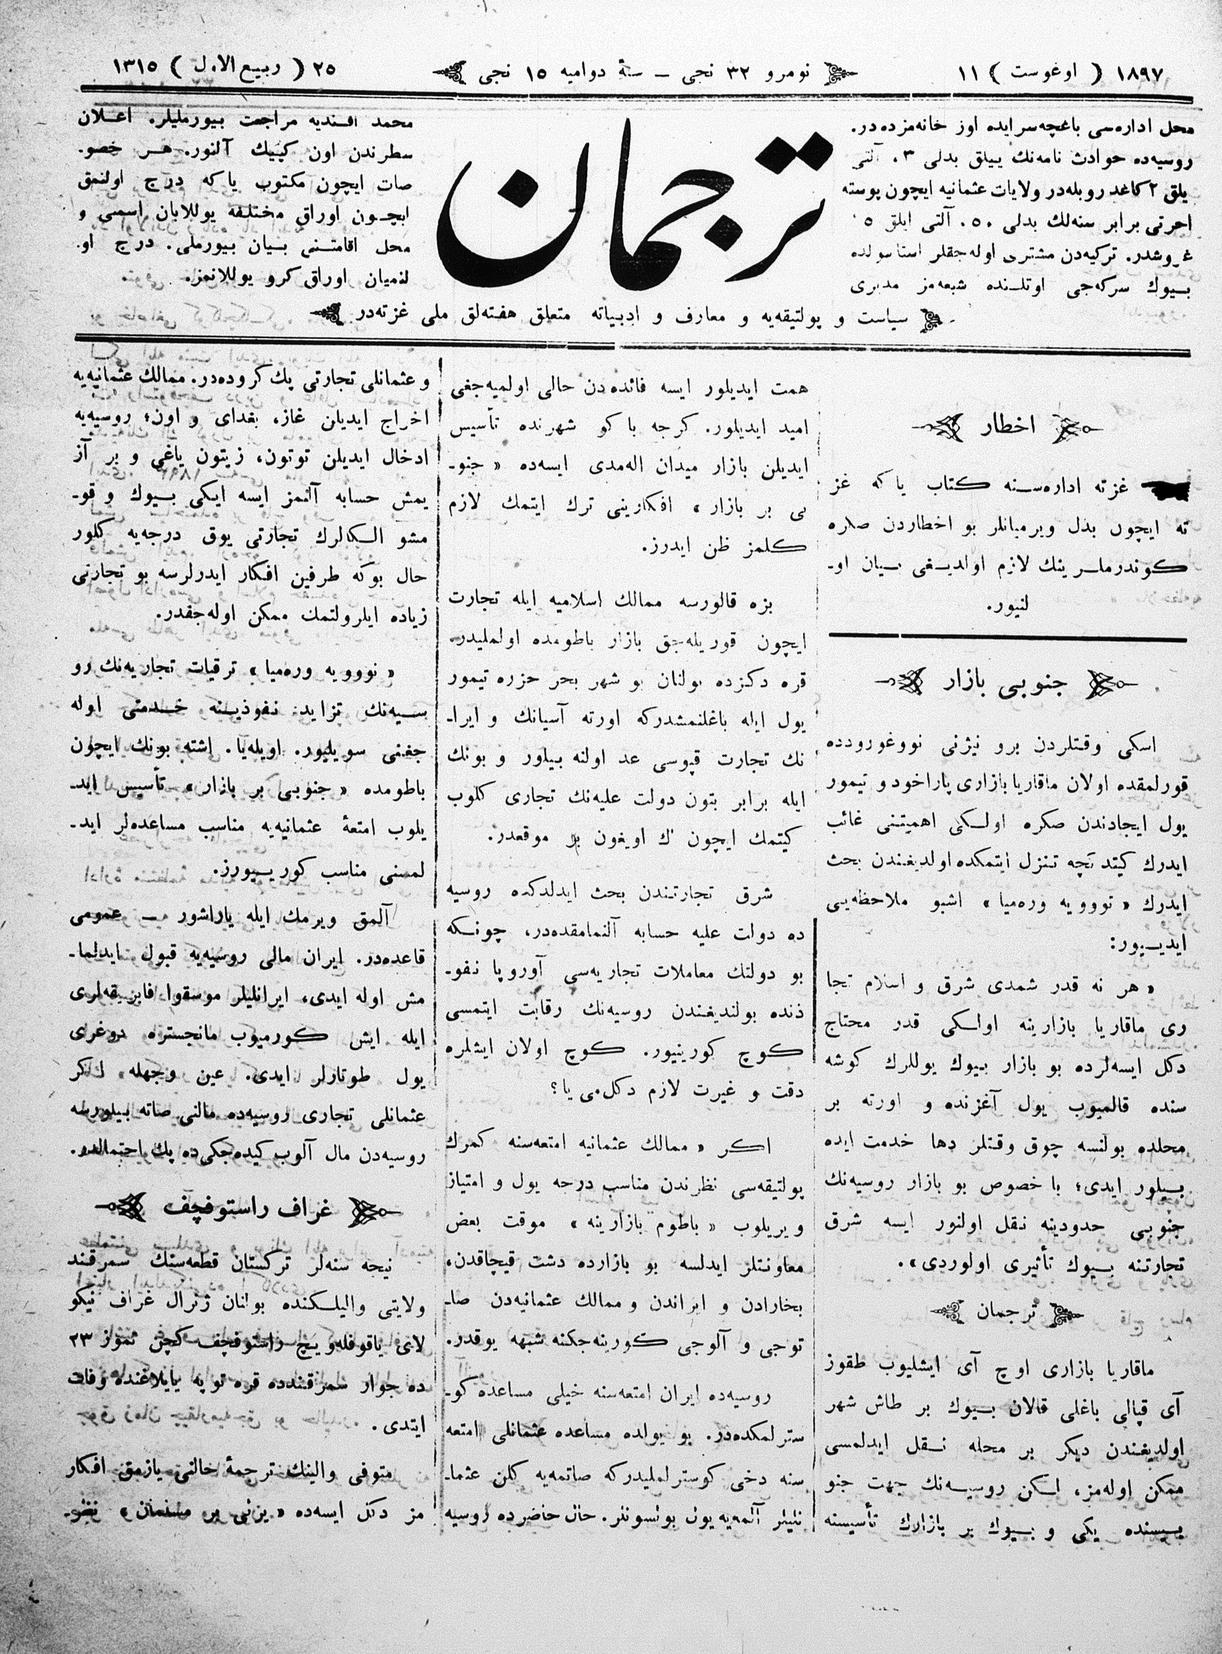 ١٨٩٧ ( اوغوست ) ١١
نومرو ٣٢ نجی ــ سنۀ دوامیه ١٥ نجی
٢٥ ( ربیع الاول ) ١٣١٥
محل اداره‌سی باغچه‌سرایده اوز خانه‌مزده‌در.
روسیه‌ده حوادث نامه‌نك ییلق بدلی ٣. آلتی
یلق ٢ كاغد روبله‌در ولایات عثمانیه ایچون پوسته
اجرتی برابر سنه‌لك بدلی ٥٠. آلتی ایلق ٥
غروشدر. تركیه‌دن مشتری اوله‌جقلر استانبولده
بیوك سركه‌جی اوتلنده شبعه‌مز مدیری
ترجمان
محمد افندیه مراجعت بیورملیلر. اعلان
سطرندن اون كپیك آلنور. هر خصو-
صات ایچون مكتوب یاكه درج اولنمق
ایچون اوراق مختلفه یوللایان اسمی و
محل اقامتنی بیان بیورملی. درج او
لنمیان اوراق كرو یوللانمز.
سیاست و پولتیقه‌یه و معارف و ادبیاته متعلق هفته‌لق ملی غزته‌در
اخطار
غزته اداره‌سنه كتاب یاكه غز
ته ایچون بدل ویرمیانلر بو اخطاردن صكره
كوندرملرینك لازم اولدیغی بیان او-
لنیور.
جنوبی بازار
اسكی وقتلردن برو نیژنی نووغورودده
قورلمقده اولان ماقاریا بازاری پاراخود و تیمور
یول ایجادندن صكره اولكی اهمیتنی غائب
ایدرك كیتدكچه تنزل ایتمكده اولدیغندن بحث
ایدرك « نوویه وره‌میا » اشبو ملاحظه‌یی
ایدیور:
« هر نه قدر شمدی شرق و اسلام تجا
ری ماقاریا بازارینه اولكی قدر محتاج
دكل ایسه‌لرده بو بازار بیوك یوللرك كوشه
سنده قالمیوب یول آغزنده و اورته بر
محلده بولنسه چوق وقتلر دها خدمت ایده
بیلور ایدی؛ با خصوص بو بازار روسیه‌نك
جنوبی حدودینه نقل اولنور ایسه شرق
تجارتنه بیوك تأثیری اولوردی ».
ترجمان
ماقاریا بازاری اوچ آی ایشلیوب طقوز
آی قپالی باغلی قالان بیوك بر طاش شهر
اولدیغندن دیكر بر محله نقل ایدلمسی
ممكن اوله‌مز، لكن روسیه‌نك جهت جنو
بیسنده یكی و بیوك بر بازارك تأسیسنه
همت ایدیلور ایسه فائده‌دن خالی اولمیه‌جغی
امید ایدیلور. كرجه باكو شهرنده تأسیس
ایدیلن بازار میدان اله‌مدی ایسه‌ده « جنو-
بی بر بازار » افكارینی ترك ایتمك لازم
كلمز ظن ایدرز.
بزه قالورسه ممالك اسلامیه ایله تجارت
ایچون قوریله‌جق بازار باطومده اولملیدر.
قره دكزده بولنان بو شهر بحر حزره تیمور
یول ایله باغلنمشدركه اورته آسیانك و ایرا-
نك تجارت قپوسی عد اولنه بیلور و بونك
ایله برابر بتون دولت علیه‌نك تجاری كلوب
كیتمك ایچون اك اویغون بر موقعدر.
شرق تجارتندن بحث ایدلدكده روسیه
ده دولت علیه حسابه آلنمامقده‌در، چونكه
بو دولتك معاملات تجاریه‌سی آوروپا نفو-
ذنده بولندیغندن روسیه‌نك رقابت ایتمسی
كوچ كورینیور. كوچ اولان ایشلره
دقت و غیرت لازم دكلمی یا؟
اكر « ممالك عثمانیه امتعه‌سنه كمرك
پولتیقه‌سی نظرندن مناسب درجه یول و امتیاز
ویریلوب « باطوم بازارینه » موقت بعض
معاونتلر ایدلسه بو بازارده دشت قیچاقدن،
بخارادن و ایراندن و ممالك عثمانیه‌دن صا-
توجی و آلوجی كورینه‌جكنه شبهه یوقدر.
روسیه‌ده ایران امتعه‌سنه خیلی مساعده كو-
سترلمكده‌در. بو یولده مساعده عثمانلی امتعه
سنه دخی كوسترلملیدركه صاتمه‌یه كلن عثما-
نلیلر آلمه‌یه یول بولسونلر. حال حاضرده روسیه
و عثمانلی تجارتی پك كروده‌در. ممالك عثمانیه‌یه
اخراج ایدیلن غاز، بغدای و اون؛ روسیه‌یه
ادخال ایدیلن توتون، زیتون یاغی و بر آز
یمش حسابه آلنمز ایسه ایكی بیوك و قو-
مشو الكه‌لرك تجارتی یوق درجه‌یه كلور
حال بوكه طرفین افكار ایدرلرسه بو تجارتی
زیاده ایلرولتمك ممكن اوله‌جقدر.
« نوویه وره‌میا » ترقیات تجاریه‌نك رو
سیه‌نك تزاید نفوذینه خدمتی اوله
جغنی سویلیور. اویله‌یا. اشته بونك ایچون
باطومده « جنوبی بر بازار » تأسیس اید-
یلوب امتعۀ عثمانیه‌یه مناسب مساعده‌لر اید-
لمسنی مناسب كوریورز.
آلمق ویرمك ایله یاراشور ــ عمومی
قاعده‌در. ایران مالی روسیه‌یه قبول ایدلما-
مش اوله ایدی، ایرانلیلر موسقوا فابریقه‌لری
ایله ایش كورمیوب مانچستره دوغری
یول طوتارلر ایدی. عین وجهله اكر
عثمانلی تجاری روسیه‌ده مالنی صاته بیلورسه
روسیه‌دن مال آلوب كیده‌جكی‌ده پك احتمالدر.
غراف راستوفچف
نیجه سنه‌لر تركستان قطعه‌سنك سمرقند
ولایتی والیلكنده بولنان ژنرال غراف نیكو
لای یاقوفله‌ویچ راستوفچف كچن تموز ٢٣
ده جوار سمرقندده قره توبه یایلاغنده وفات
ایتدی.
متوفی والینك ترجمۀ حالنی یازمق افكار
مز دكل ایسه‌ده « یرنی بر مسلمان » نظر-